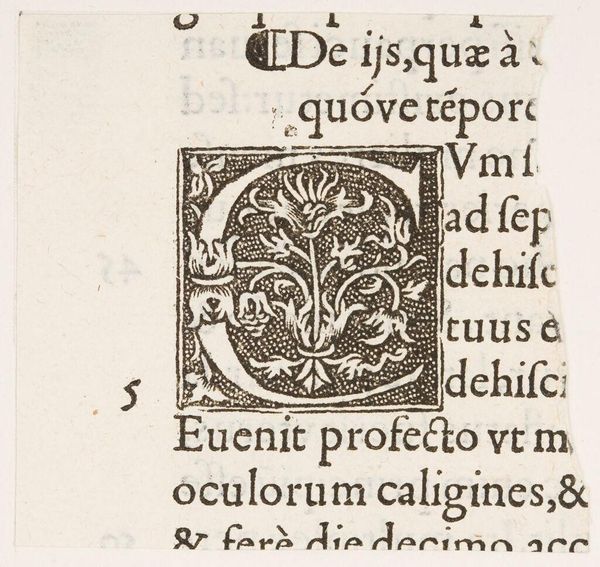 De ijs, quæ à
quóve tẽpore
CVm
ad sep
dehisc
tuus è
dehisci
5
Euenit profecto vt m
oculorum caligines, &
& ferè die decimo acc